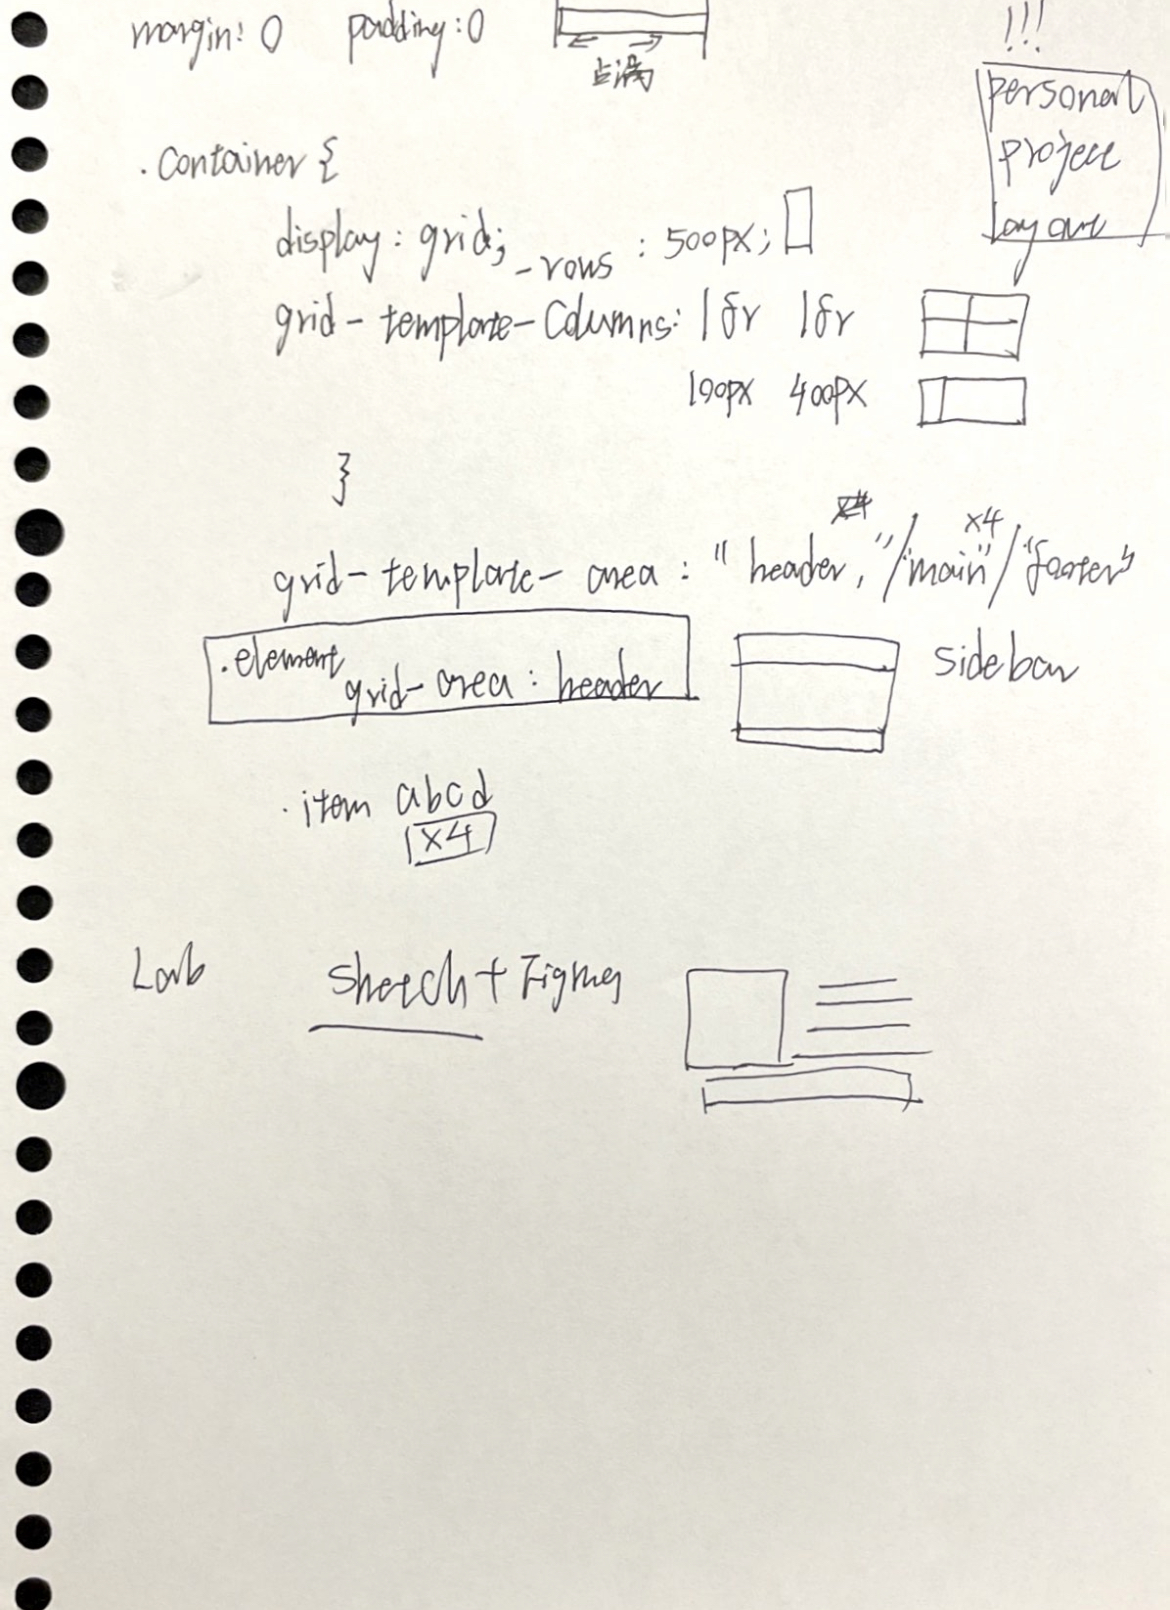 margin: 0 padding: 0
占满
!!!
personal
project
layout
.Container {
display: grid;
-rows : 500px;
grid-template-Columns: 1fr 1fr
100px 400px
}
x4
grid-template-area: "header, "/"main"/"footer"
.element
grid-area: header
sidebar
.item abcd
x4
Lab Sketch + Figma